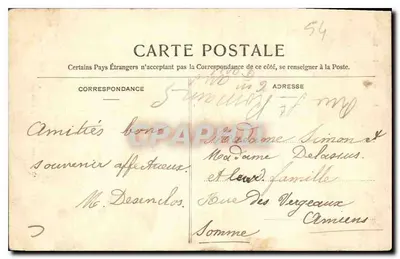 54
CARTE POSTALE
Certains Pays Étrangers n'acceptant pas la Correspondance de ce côté, se renseigner à la Poste.
CORRESPONDANCE
ADRESSE
Amitiés bon
souvenir affectueux.
M. Desenclos.
Madame Simon et
Madame Delasius
et leur famille
Rue des Vergeaux
Amiens
Somme
CARTAPRO